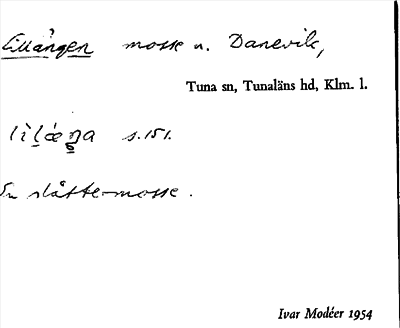 Lillängen mosse n. Danevik,
Tuna sn, Tunaläns hd, Klm. l.
s. 151.
En slåttermosse.
Ivar Modéer 1954